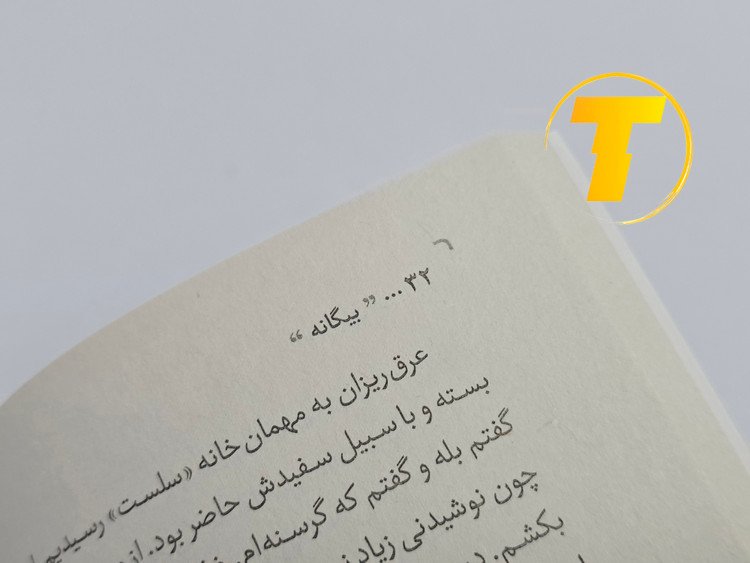 T
۳۲ ... ” بیگانه “
عرق‌ریزان به مهمان خانه «سلست» رسیدیم
بسته و با سبیل سفیدش حاضر بود.
گفتم بله و گفتم که گرسنه‌ام
چون نوشیدنی
بکشم.